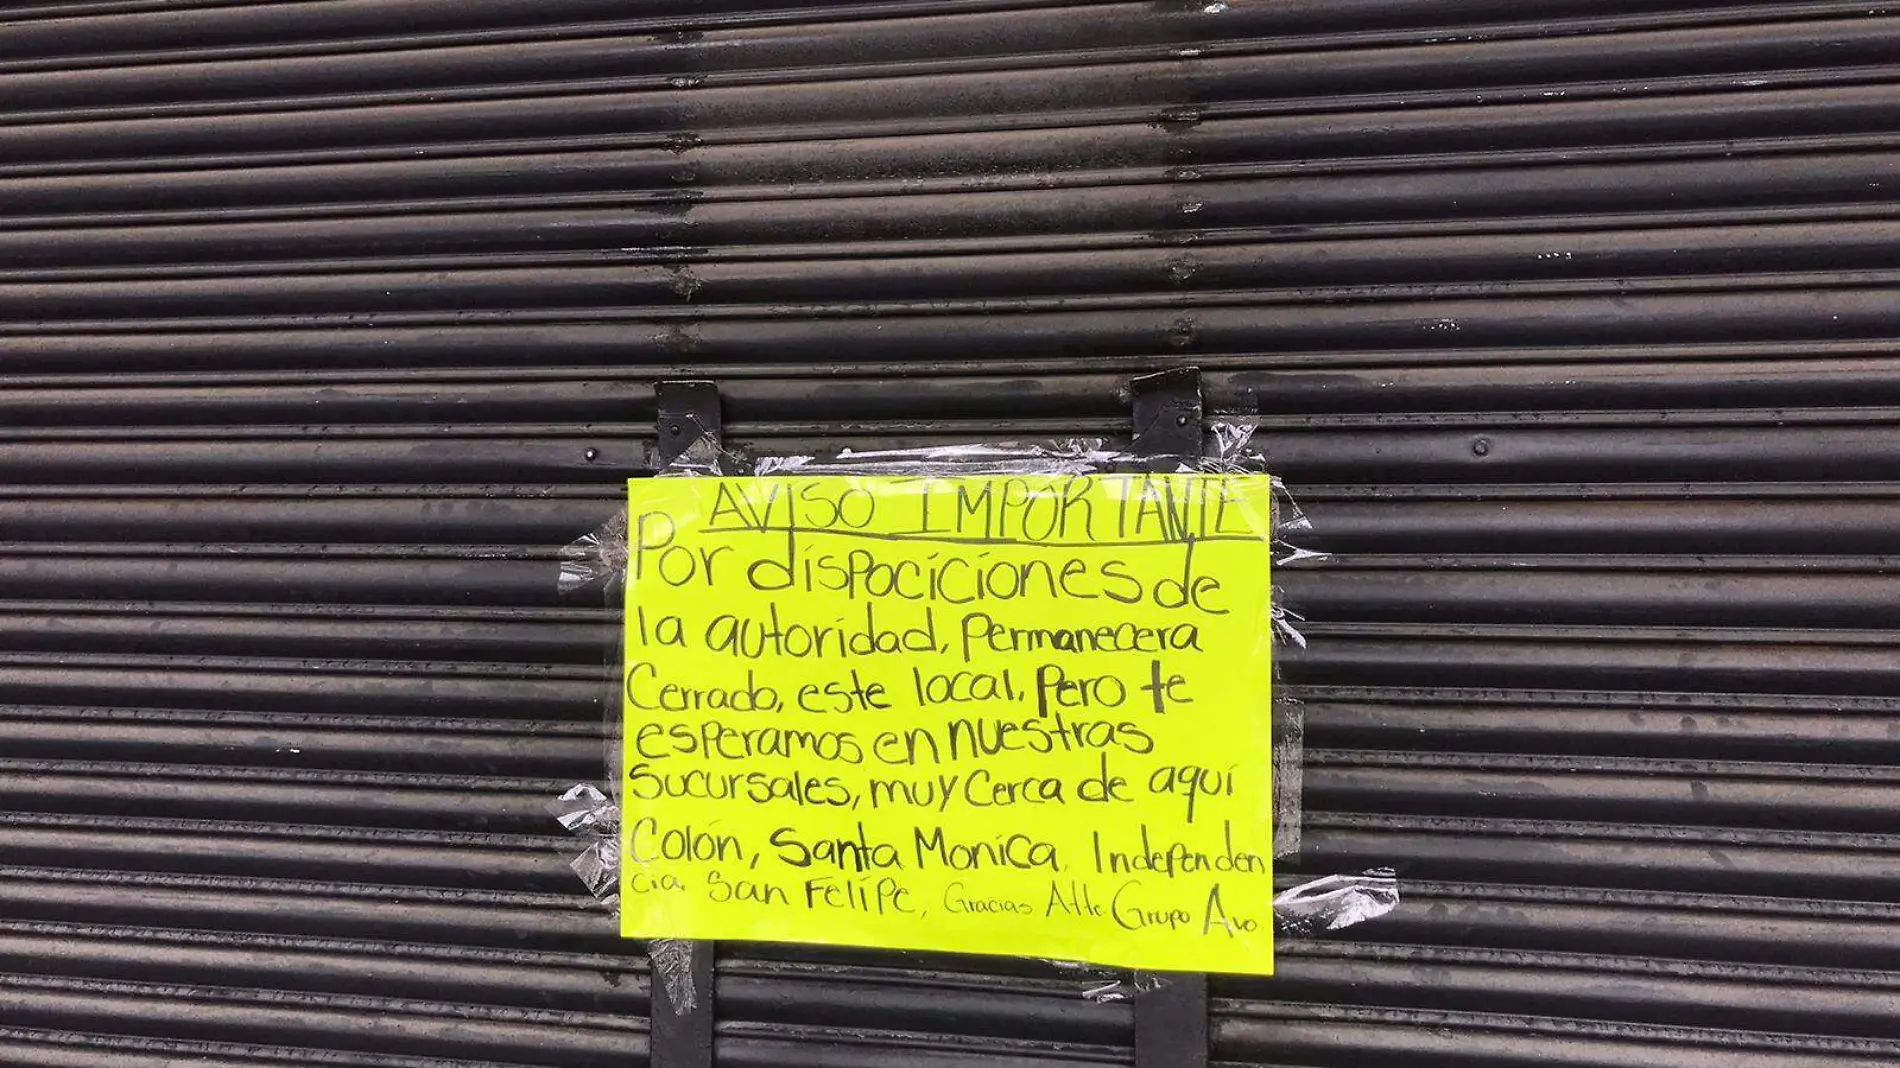 AVISO IMPORTANTE
Por dispociciones de
la autoridad, permanecera
Cerrado, este local, pero te
esperamos en nuestras
sucursales, muy cerca de aquí
Colón, Santa Monica, Independen
cia, San Felipe, Gracias Atte. Grupo Avo